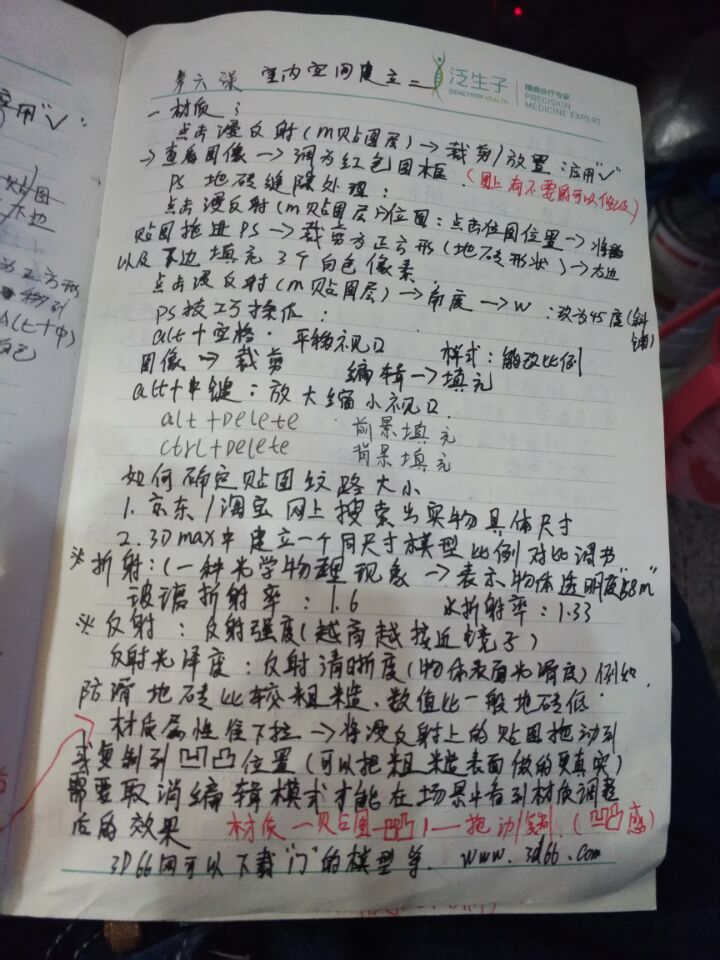 第六课 室内空间建立二
泛生子
GENETRON HEALTH
精准诊疗专家
PRECISION
MEDICINE EXPERT
应用"√":
贴图
下边
为正方形
移到
Alt+中
自己
一材质:
点击漫反射(m贴图层)→裁剪/放置:应用"√"
→查看图像→调为红色图框(图上有不要的可以
PS 地砖缝隙处理:
点击漫反射(m贴图层)→位图:点击位图位置→将
贴图拖进PS→裁剪为正方形(地砖形状)→右边
以及下边填充3个白色像素
点击漫反射(m贴图层)→角度→W:改为45度(斜铺)
PS技巧操作:
alt+空格·平移视口 样式:能改比例
图像→裁剪 编辑→填充
alt+中键:放大缩小视口.
alt+Delete 前景填充
ctrl+Delete 背景填充
如何确定贴图纹路大小
1.京东/淘宝网上搜索出实物具体尺寸
2.3Dmax中建立一个同尺寸模型比例对比调节
※折射:(一种光学物理现象→表示物体透明度
玻璃折射率:1.6 水折射率:1.33
※反射:反射强度(越高越接近镜子)
反射光泽度:反射清晰度(物体表面光滑度)例如.
防滑地砖比较粗糙、数值比一般地砖低.
材质属性往下拉→将漫反射上的贴图拖动到
或复制到凹凸位置(可以把粗糙表面做的更真实)
需要取消编辑模式才能在场景中看到材质调整
后的效果 材质→贴图→凹凸→拖动/复制.(凹凸感)
3D66网可以下载"门"的模型等. www.3d66.com